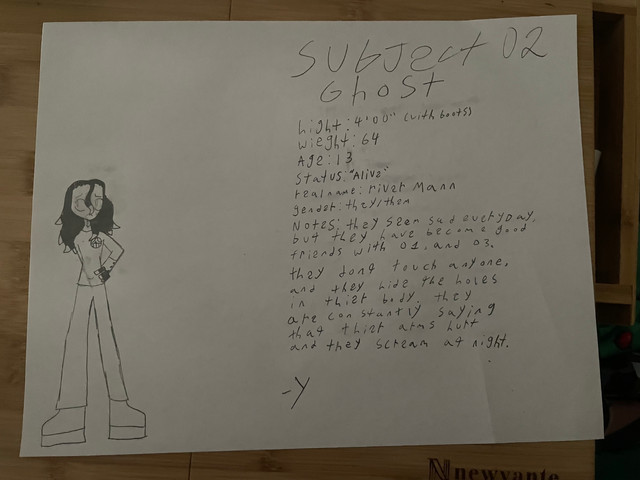 SUbJect 02
GhoSt
hight: 4'00" (with boots)
wieght: 64
Age: 13
Status: "Alive"
real name: river Mann
gender: they/them
Notes: they seem sad everyday,
but they have become good
friends with 01. and 03.
they dont touch anyone.
and they hide the holes
in thier body. they
are constantly saying
that thier arms hurt
and they scream at night.
-Y
newvante